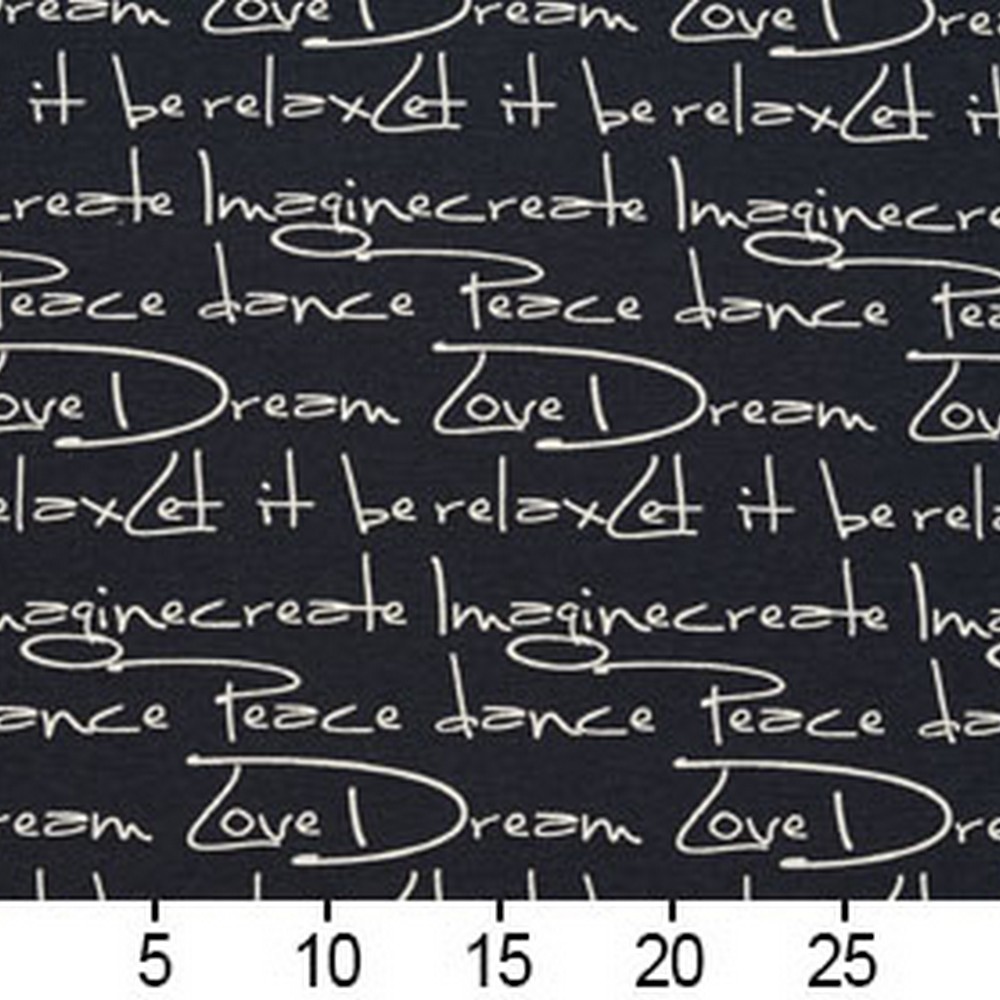 ream Love Dream Love Drea
it be relax Let it be relax Let it
create Imagine create Imagine cre
Peace dance Peace dance Pea
ove Dream Love Dream Lov
elax Let it be relax Let it be rela
maginecreate Imagine create Ima
ance Peace dance Peace da
ream Love Dream Love Dre
5 10 15 20 25